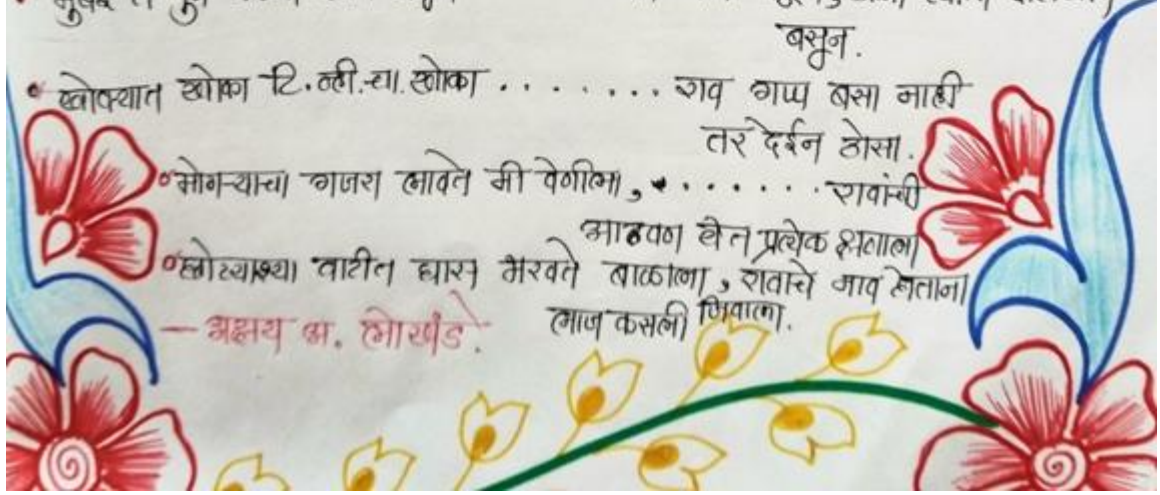 मुंबई ते पुणे
बसून.
खोक्यात खोका टि.व्ही.चा.खोका ........ राव गप्प बसा नाही
तर देईन ठोसा.
मोगऱ्याचा गजरा लावते मी वेणीला, ....... रावांची
आठवण येते प्रत्येक क्षणाला
छोट्याश्या वाटीत घास भरवते बाळाला, रावांचे नाव घेताना
लाज कसली जिवाला.
— अक्षय अ. लोखंडे.